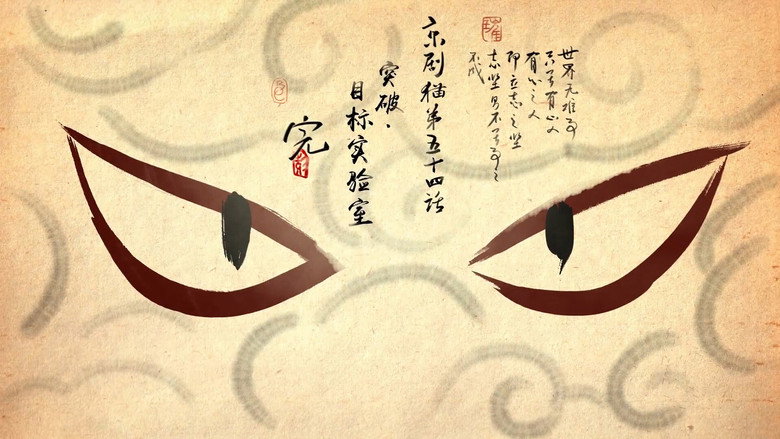 世界无难事
只等有心人
有心之人
即立志之坚
志坚则不等事之
不成
京剧猫第五十四话
突破、
目标实验室
完